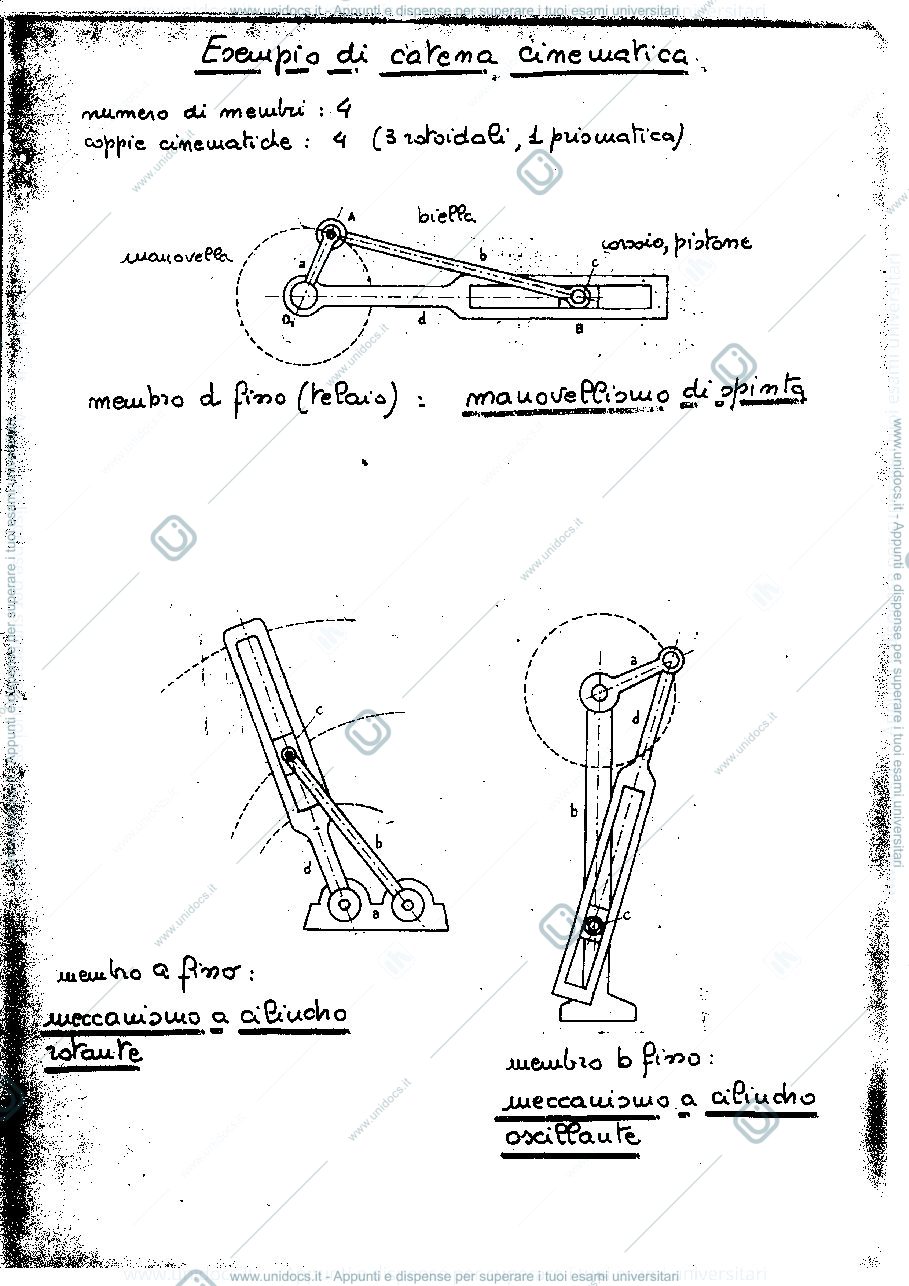 www.unidocs.it - Appunti e dispense per superare i tuoi esami universitari
Esempio di catena cinematica
numero di membri : 4
coppie cinematiche : 4 (3 rotoidali, 1 prismatica)
biella
A
manovella
corsoio, pistone
a
b
c
O₁
d
B
membro d fisso (telaio) : manovellismo di spinta
c
b
d
a
a
d
b
c
membro a fisso :
meccanismo a cilindro
rotante
membro b fisso :
meccanismo a cilindro
oscillante
www.unidocs.it - Appunti e dispense per superare i tuoi esami universitari